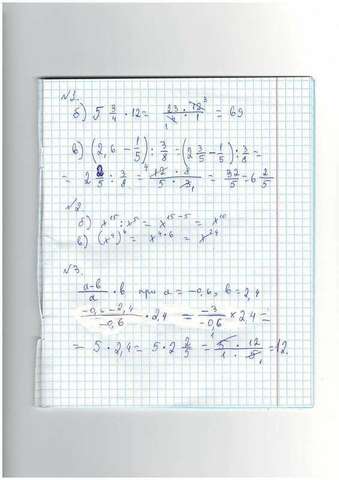 №1.
б) 5 3/4 · 12 = 23 · 12 3 / 4 1 · 1 = 69
в) (2,6 − 1/5) : 3/8 = (2 3/5 − 1/5) : 3/8 =
= 2 2/5 : 3/8 = 4 12 · 8 / 5 · 3 1 = 32/5 = 6 2/5
№2
б) x¹⁵ : x⁵ = x¹⁵⁻⁵ = x¹⁰
в) (x⁴)⁶ = x⁴·⁶ = x²⁴
№3.
a−b/a · b при a = −0,6, b = 2,4
−0,6−2,4/−0,6 · 2,4 = −3/−0,6 × 2,4 =
= 5 · 2,4 = 5 · 2 2/5 = 1 5 · 12 / 1 · 5 1 = 12.